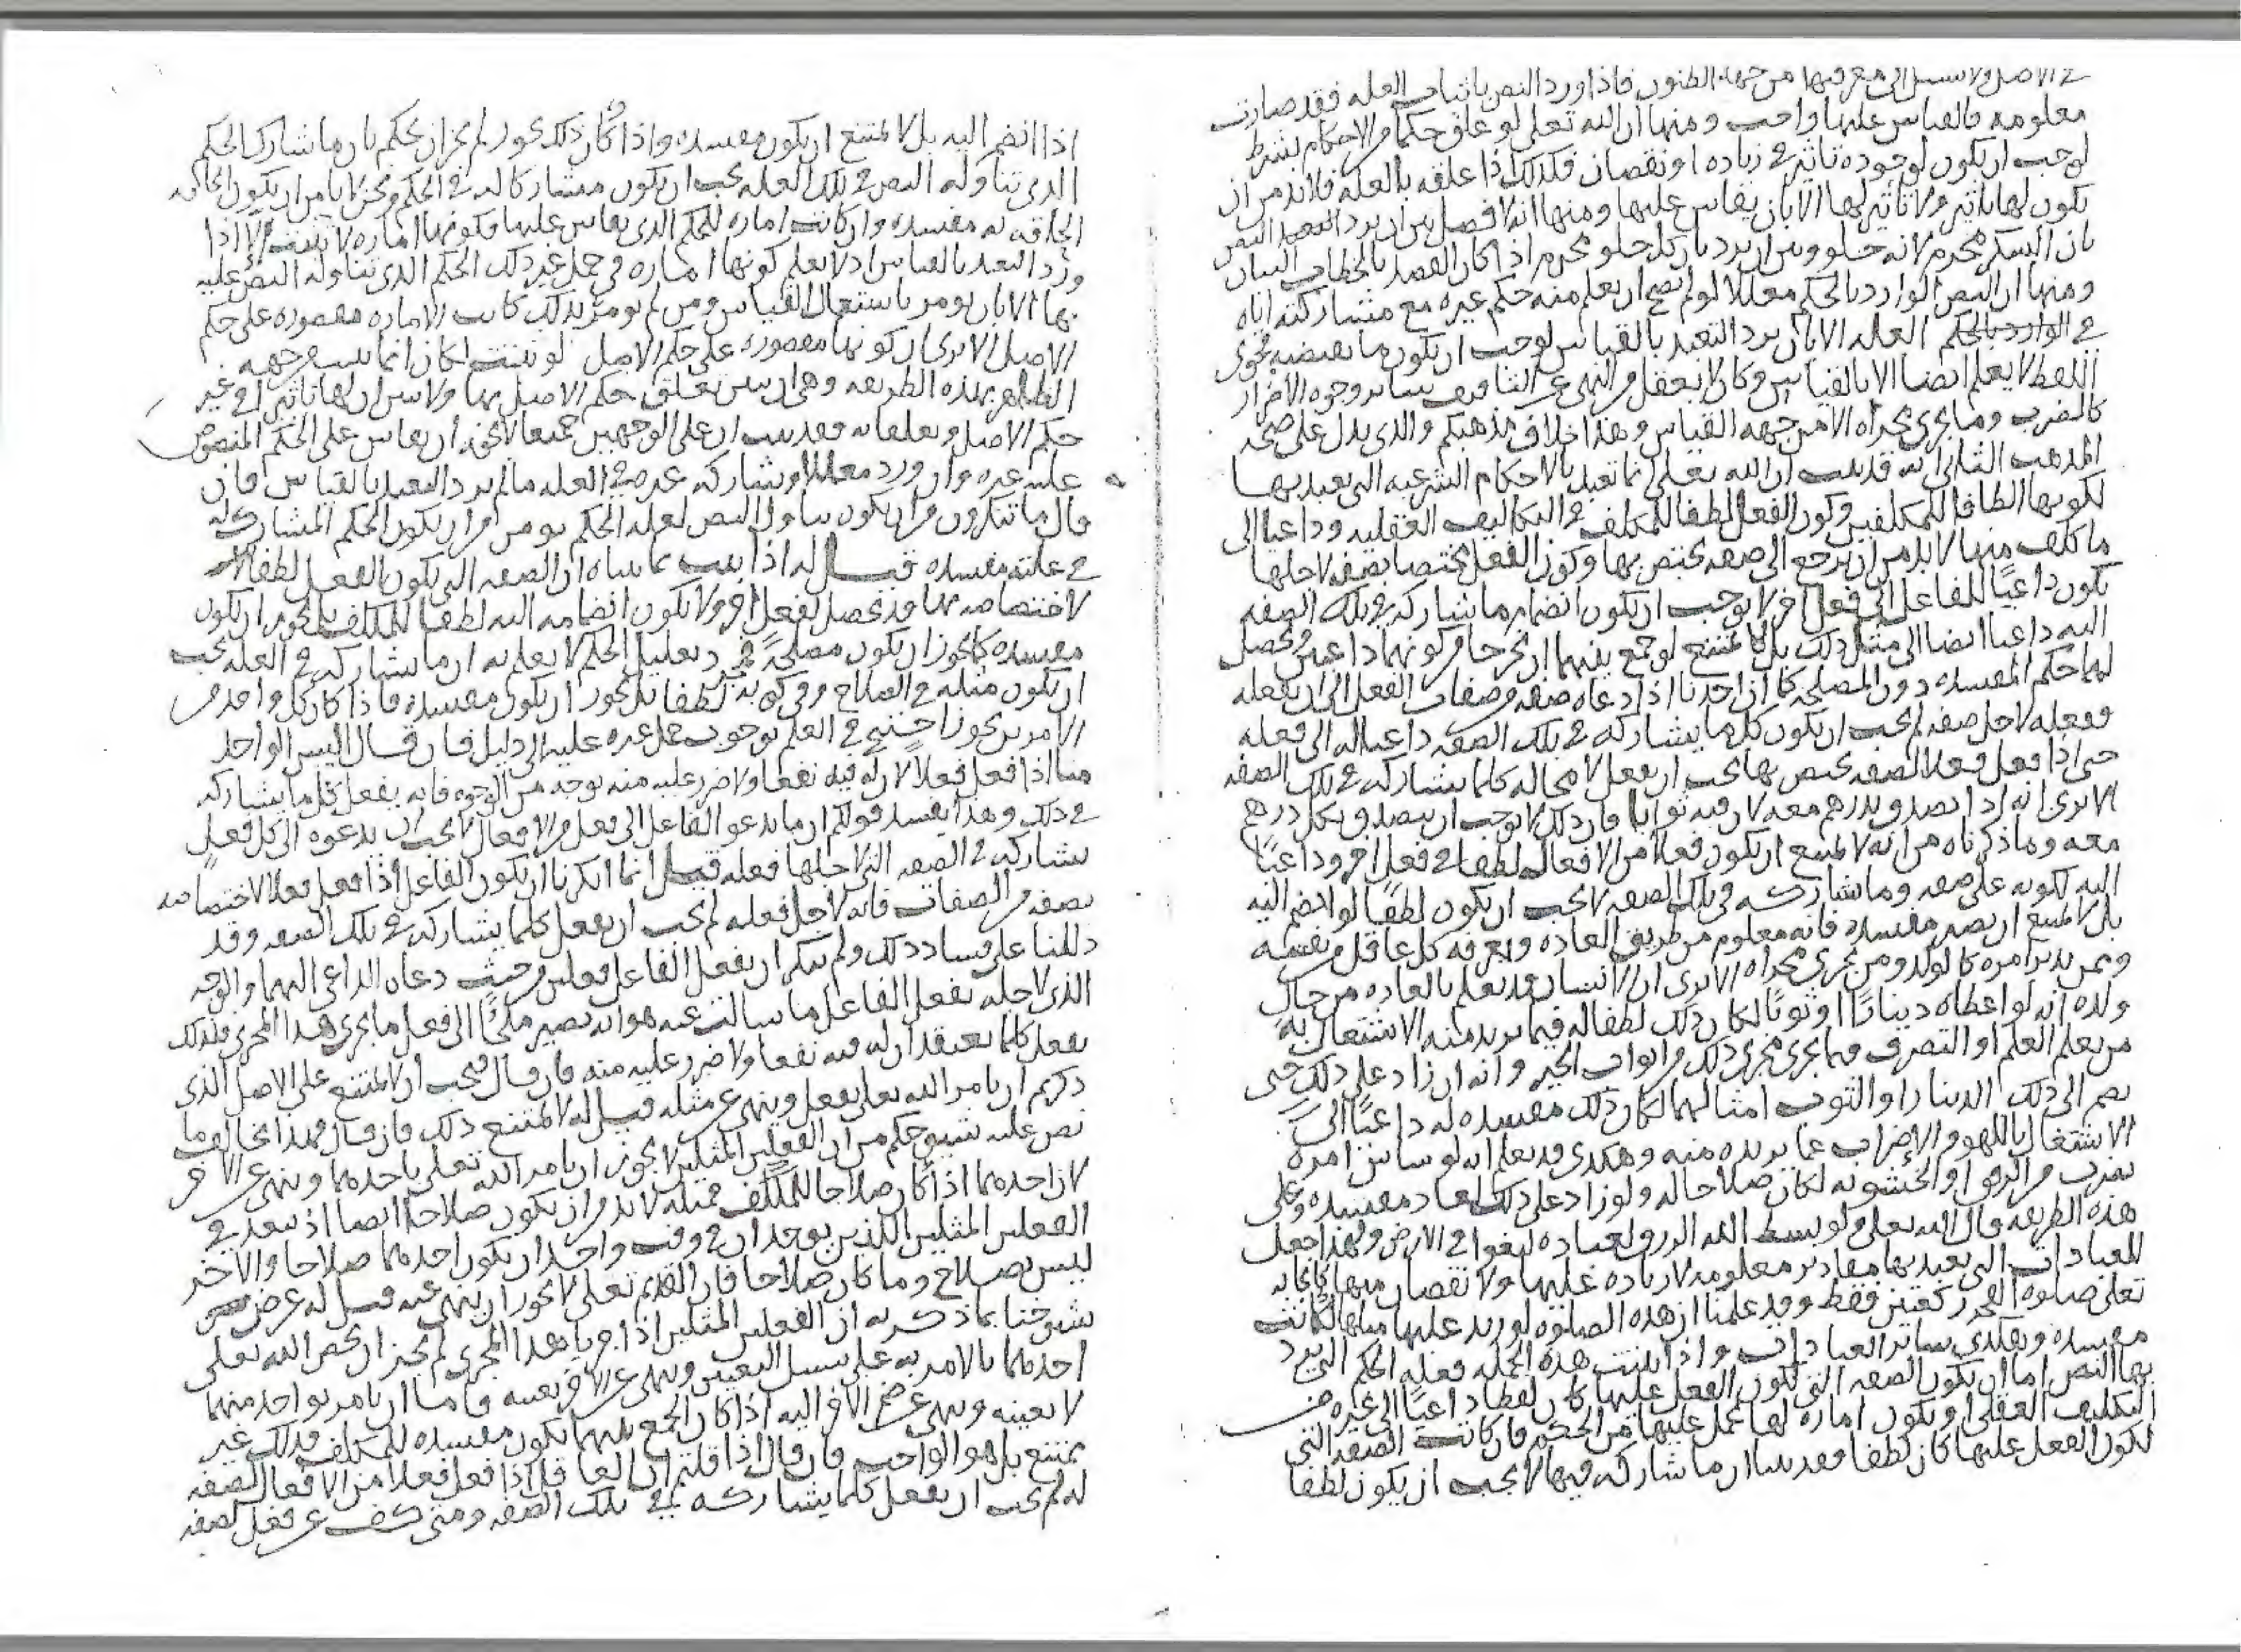 في الاصل ولا سبيل الى معرفتها من جهه الظنون فاذا ورد النص باثبات العله فقد صارت
معلومه فالقياس عليها واجب ومنها ان الله تعلى لو علق حكما من الاحكام بشرط
لوجب ان يكون لوجوده تاثير في زياده او نقصان فكذلك اذا علقه بالعله فلا بد من ان
يكون لها تاثير ولا تاثير لها الا بان يقاس عليها ومنها انه لا فصل بين ان يرد التعبد النص
بان السكر محرم لانه حلو وبين ان يرد بان كل حلو محرم اذا كان القصد بالخطاب البيان
ومنها ان النص الوارد بالحكم معللا لو لم يصح ان يعلم منه حكم غيره مع مشاركته اياه
في الوارد بالحكم العله الا بان يرد التعبد بالقياس لوجب ان يكون ما يقتضيه فحوى
اللفظ لا يعلم ايضا الا بالقياس وكان لا يعقل من النهي عن التافيف سائر وجوه الاضرار
كالضرب وما يجري مجراه الا من جهه القياس وهذا خلاف مذهبكم والذي يدل على صحه
المذهب الثاني انه قد ثبت ان الله تعلى انما تعبد بالاحكام الشرعيه التي تعبد بها
لكونها الطافا للمكلفين وكون الفعل لطفا للمكلف في التكاليف العقليه وداعيا الى
ما كلف منها لا بد من ان يرجع الى صفه يختص بها وكون الفعل مختصا بصفه لاجلها
يكون داعيا للفاعل الى فعل اخر لا يوجب ان يكون انضمام ما شاركه في تلك الصفه
اليه داعيا ايضا الى مثل ذلك بل لا يمتنع لو جمع بينهما ان يخرجا من كونهما داعيين ويحصل
لهما حكم المفسده دون المصلحه كما ان احدنا اذا دعاه صفه من صفات الفعل الى ان يفعله
ففعله لاجل صفه لم يجب ان يكون كل ما يشاركه في تلك الصفه داعيا له الى فعله
حتى اذا فعل فعلا لصفه يختص بها يجب ان يفعل لا محاله كلما يشاركه في تلك الصفه
الا ترى انه اذا تصدق بدرهم معه لان فيه ثوابا فان ذلك لا يوجب ان يتصدق بكل درهم
معه وما ذكرناه من انه لا يمتنع ان يكون فعلا من الافعال لطفا في فعل اخر وداعيا
اليه لكونه على صفه وما شاركه في تلك الصفه لا يجب ان يكون لطفا لو انضم اليه
بل لا يمتنع ان يصير مفسده فانه معلوم من طريق العاده ويعرفه كل عاقل من نفسه
وممن يدبر امره كالولد ومن يجري مجراه الا ترى ان الانسان قد يعلم بالعاده من حال
ولده انه لو اعطاه دينارا او ثوبا لكان ذلك لطفا له فيما يريد منه الاشتغال به
من تعلم العلم او التصرف فيما يجري مجرى ذلك من ابواب الخير وانه ان زاد على ذلك حتى
يضم الى ذلك الدينار او الثوب امثالهما لكان ذلك مفسده له داعيا الى
الاشتغال باللهو والاضراب عما يريده منه وهكذى قد يعلم انه لو ساس امره
بضرب من الرفق او الخشونه لكان صلاحا له ولو زاد على ذلك لعاد مفسده وعلى
هذه الطريقه قال الله تعلى ولو بسط الله الرزق لعباده لبغوا في الارض ولهذا جعل
للعبادات التي تعبد بها مقادير معلومه لا زياده عليها ولا نقصان منها كايجابه
تعلى صلوه الفجر ركعتين فقط وقد علمنا ان هذه الصلوه لو زيد عليها مثلها لكانت
مفسده وهكذى سائر العبادات واذا ثبتت هذه الجمله فعله الحكم التي يرد
بها النص اما ان يكون الصفه التي لكون الفعل عليها كان لطفا داعيا الى غيره من
التكليف العقلي او يكون اماره لها تحمل عليها من الحكم فان كانت الصفه التي
لكون الفعل عليها كان لطفا فقد بينا ان ما شاركه فيها لا يجب ان يكون لطفا
اذا انضم اليه بل لا يمتنع ان يكون مفسده واذا كان ذلك يجوز لم يجز ان يحكم بان ما شارك الحكم
الذي تناوله النص في تلك العله يجب ان يكون مشاركا له في الحكم ونحن لا نامن ان يكون الحاقه
الحاقه به مفسده وان كانت اماره للحكم الذي يقاس عليها فكونها اماره لا يثبت الا اذا
ورد التعبد بالقياس اذ لا يعلم كونها اماره في حمل غير ذلك الحكم الذي تناوله النص عليه
بها الا بان يومر باستعمال القياس ومن لم يومر بذلك كانت الاماره مقصوره على حكم
الاصل الا ترى ان كونها مقصوره على حكم الاصل لو ثبتت لكان انما يثبت من جهه
الظاهر بهذه الطريقه وهي ان يبين تعلق حكم الاصل بها ولا يبين ان لها تاثيرا في غير
حكم الاصل وتعلقا به فقد ثبت ان على الوجهين جميعا لا يجوز ان يقاس على الحكم المنصوص
عليه غيره وان ورد معللا ويشاركه غيره في العله ما لم يرد التعبد بالقياس فان
قال ما تنكرون من ان يكون تناول النص لعله الحكم يومن من ان يكون الحكم المشارك له
في علته مفسده قيل له اذا ثبت بما بيناه ان الصفه التي يكون الفعل لطفا
لاختصاصه بها قد تحصل لفعل اخر ولا يكون انضمامه اليه لطفا للمكلف بل يجوز ان يكون
مفسده كما يجوز ان يكون مصلحة فورود تعليل الحكم لا يعلم به ان ما يشاركه في العله يجب
ان يكون مثله في الصلاح وفي كونه لطفا بل يجوز ان يكون مفسده فاذا كان كل واحد من
الامرين يجوز احتيج في العلم بوجوب حمل غيره عليه الى دليل فان قال اليس الواحد
منا اذا فعل فعلا لان له فيه نفعا ولا ضرر عليه منه بوجه من الوجوه فانه يفعل كل ما يشاركه
في ذلك وهذا يفسد قولكم ان ما يدعو الفاعل الى فعل من الافعال لا يجب ان يدعوه الى كل فعل
يشاركه في الصفه التي لاجلها فعله قيل انما انكرنا ان يكون الفاعل اذا فعل فعلا لاختصاصه
بصفه من الصفات فانه لاجل فعله لم يجب ان يفعل كلما يشاركه في تلك الصفه وقد
دللنا على فساد ذلك ولم ننكر ان يفعل الفاعل فعلين من حيث دعاه الداعي اليهما والوجه
الذي لاجله يفعل الفاعل ما سالت عنه هو انه يصير ملجأ الى فعل ما يجري هذا المجرى فلذلك
يفعل كلما يعتقد ان له فيه نفعا ولا ضرر عليه منه فان قال فيجب ان لا يمتنع على الاصل الذي
ذكرتم ان يامر الله تعلى بفعل وينهى عن مثله قيل له لا يمتنع ذلك فان قال فهذا يخالف ما
نص عليه شيوخكم من ان الفعلين المثلين لا يجوز ان يامر الله تعلى باحدهما وينهى عن الاخر
لان احدهما اذا كان صلاحا للمكلف فمثله لا بد من ان يكون صلاحا ايضا اذ يبعد في
الفعلين المثلين اللذين يوجدان في وقت واحد ان يكون احدهما صلاحا والاخر
ليس بصلاح وما كان صلاحا فان القديم تعلى لا يجوز ان ينهى عنه قيل له غرض
شيوخنا بما ذكروه ان الفعلين المثلين اذا جريا هذا المجرى لم يجز ان يخص الله تعلى
احدهما بالامر به على سبيل التعيين وينهى عن الاخر بعينه فاما ان يامر بواحد منهما
لا بعينه وينهى عن ضم الاخر اليه اذا كان الجمع بينهما يكون مفسده للمكلف فذلك غير
ممتنع بل هو الواجب فان قال اذا قلتم ان الفاعل اذا فعل فعلا من الافعال لصفه
له لم يجب ان يفعل كلما يشاركه في تلك الصفه ومتى كف عن فعل لصفه